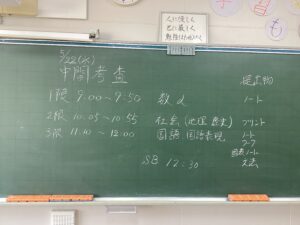 人に優しく
己に厳しく
5/22(水)
中間考査
提出物
1限 9:00〜9:50 数α ノート
2限 10:05〜10:55 社会(地理 歴史) プリント
3限 11:10〜12:00 国語 国語表現 ノート
ワーク
ノート
文法
SB 12:30